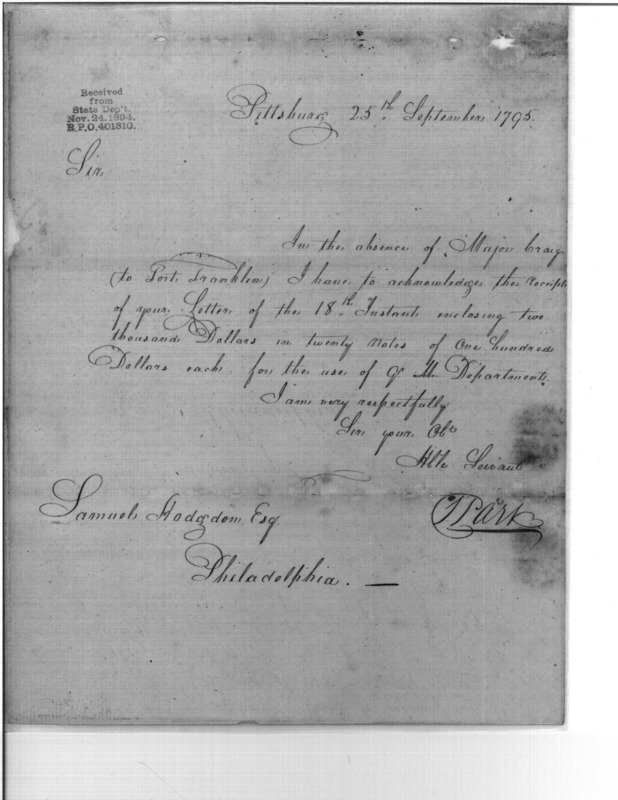 Received
from
State Dep't.
Nov. 24. 1894.
R.P.O. 401310.
Pittsburg 25th September 1795.
Sir
In the absence of Major Craig
(to Fort Franklin) I have to acknowledge the receipt
of your Letter of the 18th Instant enclosing two
thousand Dollars in twenty notes of One hundred
Dollars each for the use of Q M Department.
I am very respectfully
Sir your Obt
Hble Servant
Park
Samuel Hodgdon, Esq.
Philadelphia. —